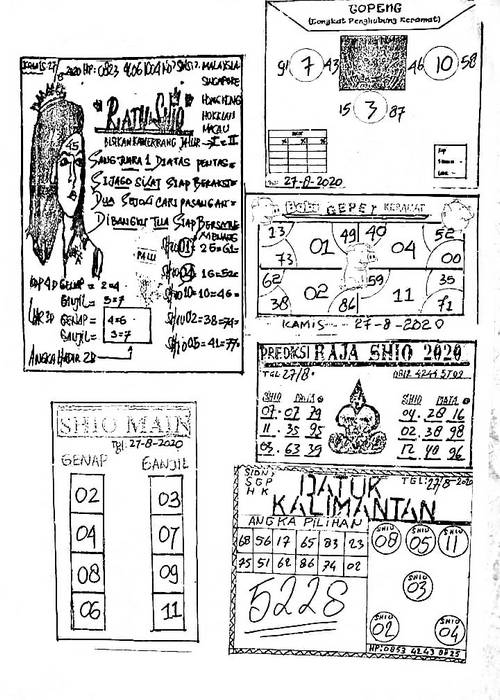 TOPENG
(Tongkat Penghubung Keramat)
91 7 43
46 10 58
15 3 87
27-8-2020
KAMIS 27/8 2020 HP: 0823
MALAYSIA
SINGAPORE
HONGKONG
HOKKIAN
MACAU
"RATU SHIO"
BISIKAN KAWERBANG JALUR → I = II
SANG JUARA 1 DIATAS PENTAS =
SIJAGO SILAT SIAP BERAKSI =
DUA SEJOLI CARI PASANGAN =
DIBANGKU TUA SIAP BERSATU =
MENANG
45
PALU
SHIO 01 = 25 = 61 =
SHIO 04 = 16 = 52 =
SHIO 10 = 10 = 46 =
SHIO 02 = 38 = 74 =
SHIO 05 = 41 = 77 =
KOP 4D GENAP = 2=4
GANJIL = 3=7
GENAP = 4=6
GANJIL = 3=7
ANGKA HADIR 2D
BOBO GEPET KERAMAT
13 73 01 49 40 04 52 00
62 38 02 86 59 11 35 71
KAMIS --- 27-8-2020
PREDIKSI RAJA SHIO 2020
TGL 27/8
SHIO DATA
07. 07 29
11. 35 95
03. 63 39
SHIO DATA
04. 28 16
02. 38 98
12. 40 96
SHIO MAIN
Tgl. 27-8-2020
GENAP GANJIL
02 03
04 07
08 09
06 11
SIDNY
SGP
HK
DATUK
KALIMANTAN
TGL: 27/8-2020
ANGKA PILIHAN
68 56 17 65 83 23
75 51 62 86 74 02
5228
SHIO 08
SHIO 05
SHIO 11
SHIO 03
SHIO 02
SHIO 04
HP: 0853 4243